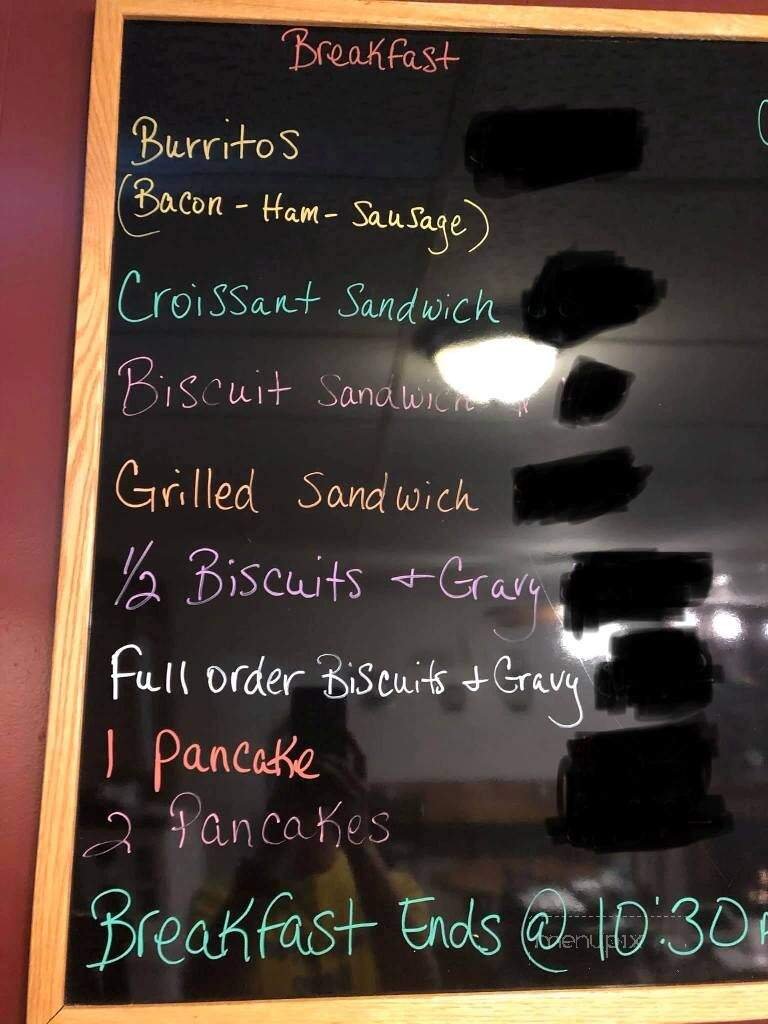 Breakfast
Burritos
(Bacon - Ham - Sausage)
Croissant Sandwich
Biscuit Sandwich
Grilled Sandwich
1/2 Biscuits + Gravy
Full order Biscuits + Gravy
1 Pancake
2 Pancakes
Breakfast Ends @ 10:30
menupix